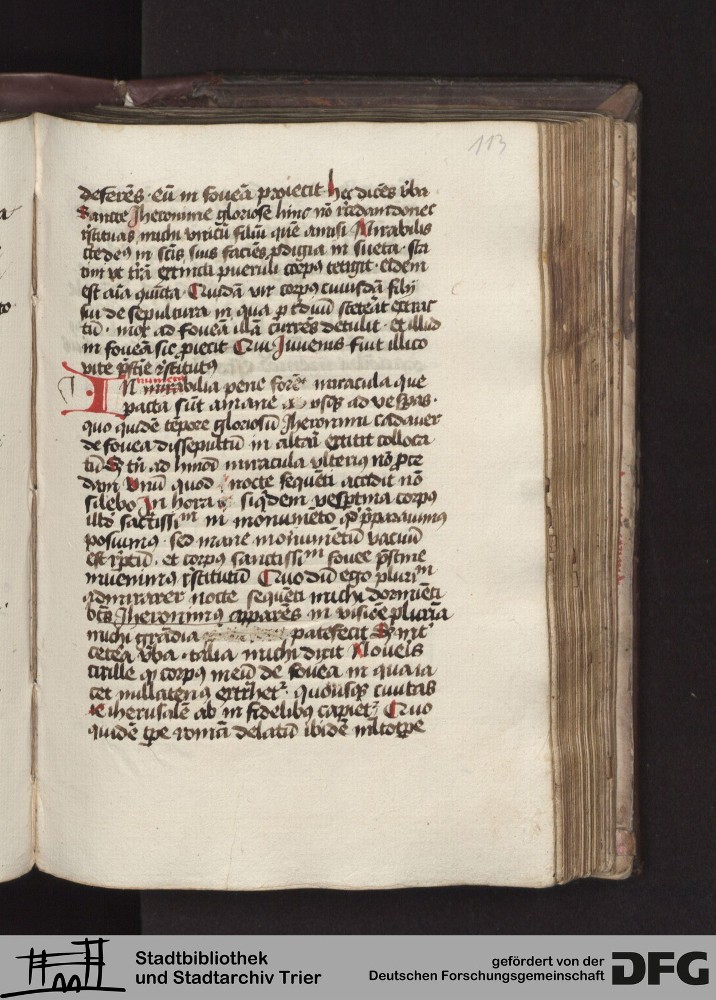 113
deferēs · eū in foueā proiecit hec dicēs v̄ba
Sancte Jheronime gloriose hinc nō r̄cedam donec
r̄stituas michi vnicū filiū que amisi Mirabilis
in sc̄is suis faciēs pdigia in sueta · sta
tim vt t̄rā pueruli corpꝰ tetigit · eidem
est aīa Quidā vir corpꝰ cuiusdā filij
sui de sepultura in qua p tͥduū steterat extrac
tū · mox ad foueā illā currēs detulit · et illud
in foueā sic ꝓiecit Qui Juuenis fuit illico
vite pͥstīe r̄stitutꝰ
In mirabilia pene forēt miracula que
pacta sūt a mane vsqꝫ ad vesꝑas ·
quo quidē tēpore gloriosū Jheronimi cadauer
de fouea dissepultū in altari extitit colloca
tū Sꝫ tn̄ ad miracula vlterius nō ꝓce
dam Vnū quod nocte seque̅ti accidit nō
silebo In hora siqͥdem vesꝑtina corpꝰ
illd̄ sactissimm in monumēto qd̄ p̄parauimꝰ
posuimꝰ · sed mane monumētū vacuū
est rꝑtū · et corpꝰ sanctissim fouee pͥstine
inuenimꝰ r̄stitutū Quo dū ego plurim
admirarer nocte sequēti michi dormiēti
bt̄s Jheronimus apparēs in visiōe plurīa
michi grādia patefecit Sꝫ int̄
cetēa v̄ba · talia michi dicit Noueris
cirille qͥ corpꝰ meū de fouea in qua ia
cet nullatenꝰ ext̄het · quousqꝫ ciuitas
ihrusalē ab infidelibꝰ capiet Quo
quidē tꝑe romā delatū ibidē mlto tꝑe
Stadtbibliothek
und Stadtarchiv Trier
gefördert von der
Deutschen Forschungsgemeinschaft
DFG